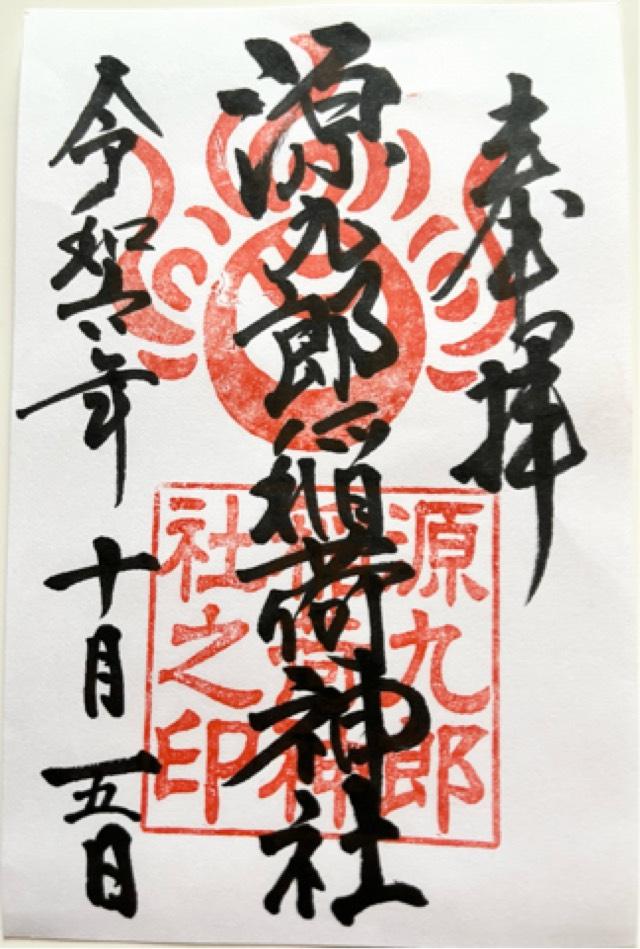 奉拝
源九郎稲荷神社
令和六年 十月 五日
源九郎
稲荷神
社之印